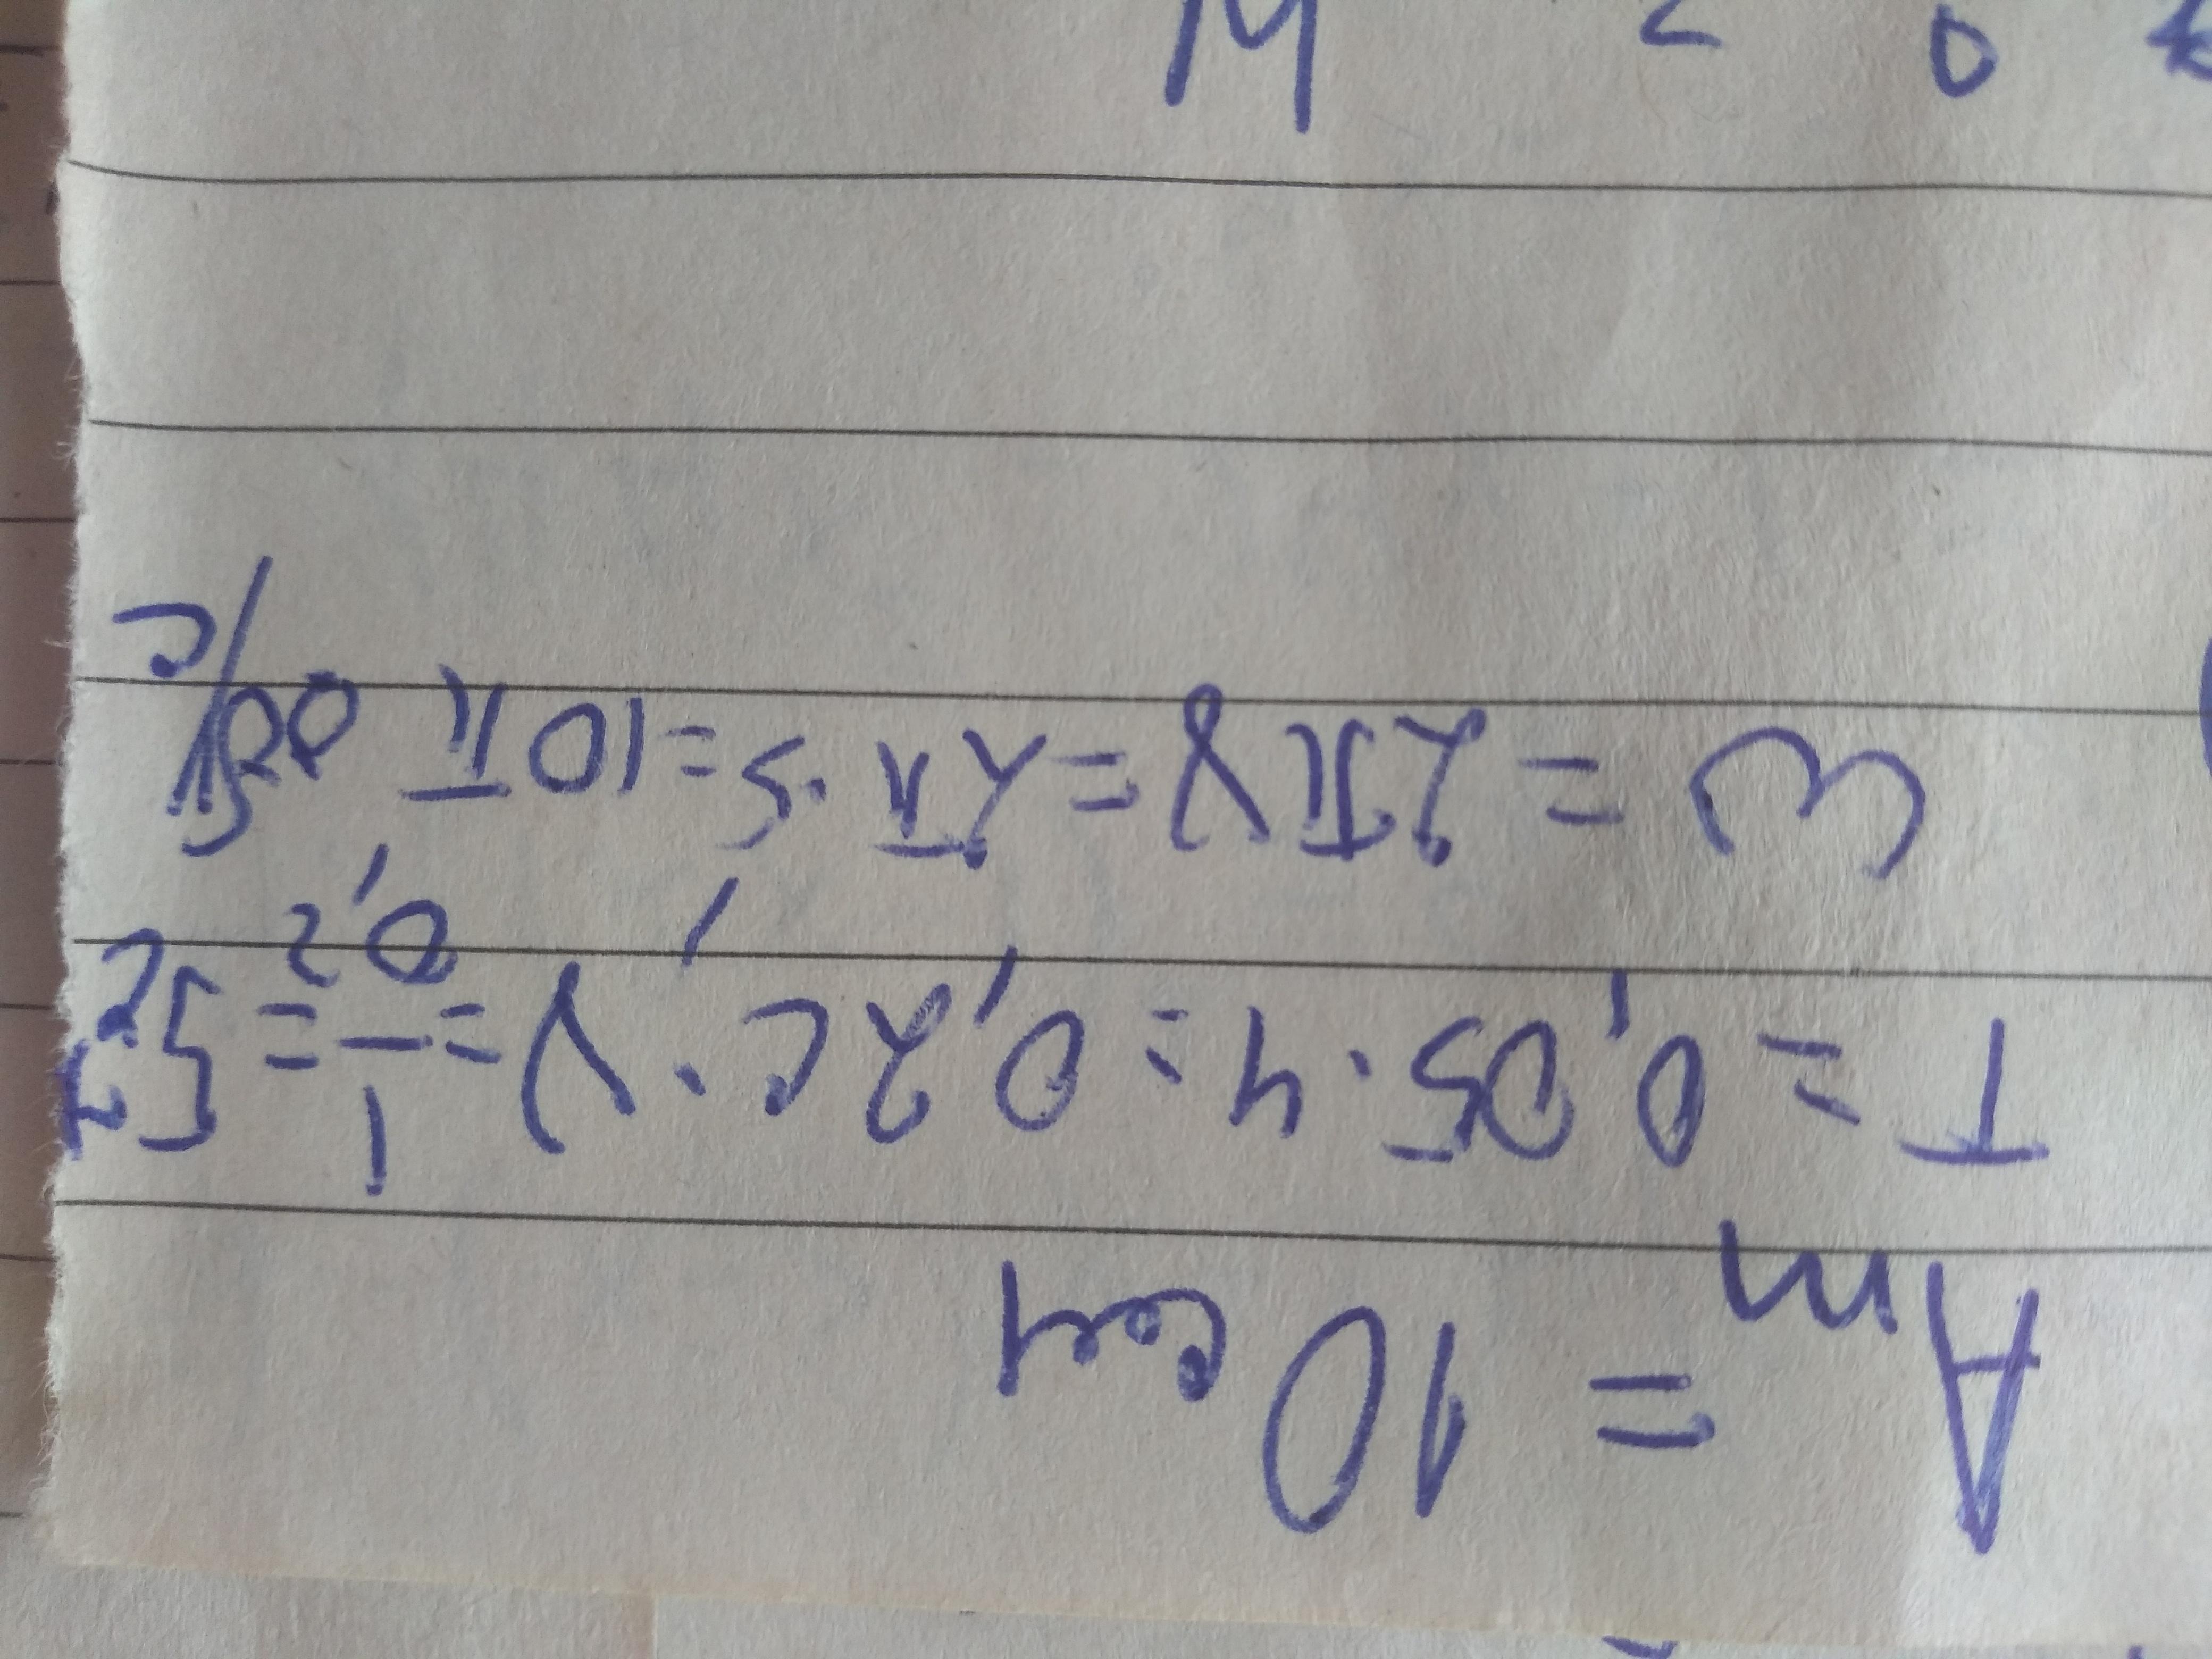 Am = 10 см
T = 0,05·4 = 0,2 с. ν = 1/0,2 = 5 Гц
ω = 2πν = 2π·5 = 10π рад/с